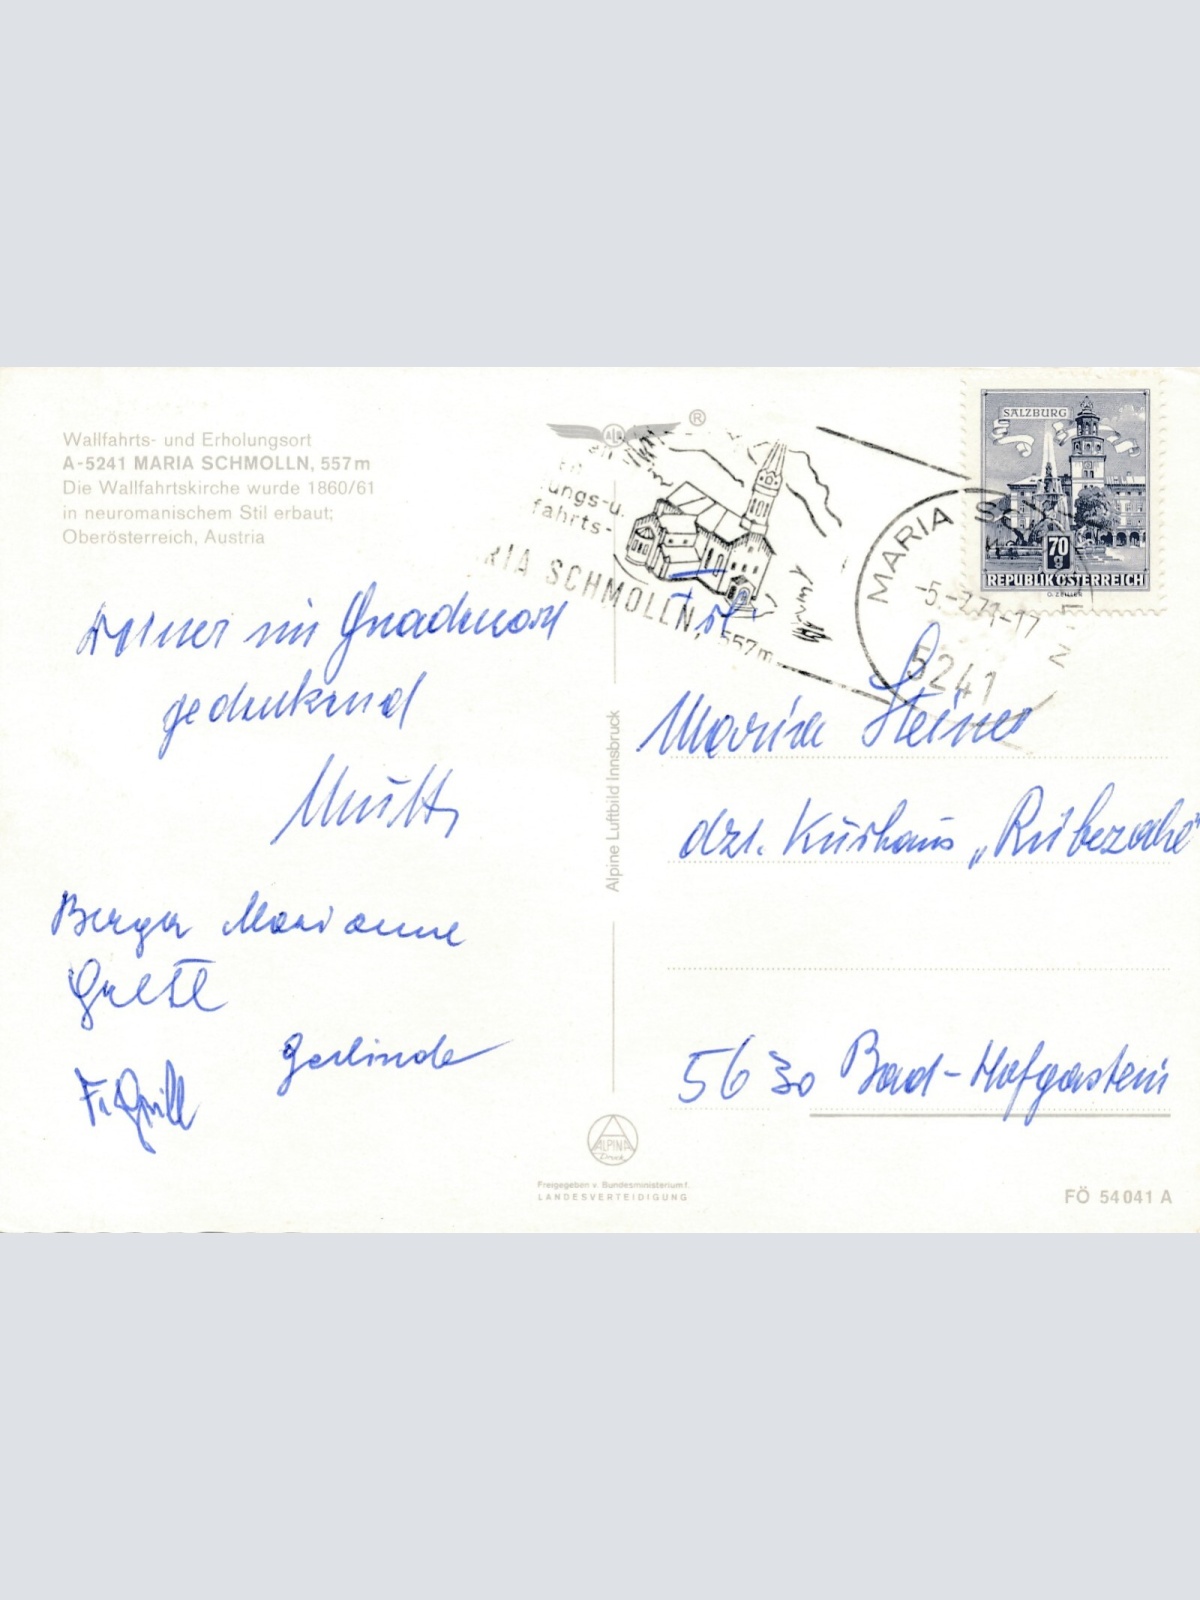 Wallfahrts- und Erholungsort
A-5241 MARIA SCHMOLLN, 557m
Die Wallfahrtskirche wurde 1860/61
in neuromanischem Stil erbaut;
Oberösterreich, Austria
®
ungs-u.
fahrts-
RIA SCHMOLLN, 557m
MARIA SC
-5.-7.71-17
5241
SALZBURG
70
g
REPUBLIK ÖSTERREICH
O. ZEILER
im Gnadenort
gedenkend
Berger Marianne
Gretl
Gerlinde
Alpine Luftbild Innsbruck
Frl.
Maria Steiner
dzt. Kurhaus „Rübezahl"
5630 Bad-Hofgastein
ALPINA
Druck
Freigegeben v. Bundesministerium f.
LANDESVERTEIDIGUNG
FÖ 54041 A